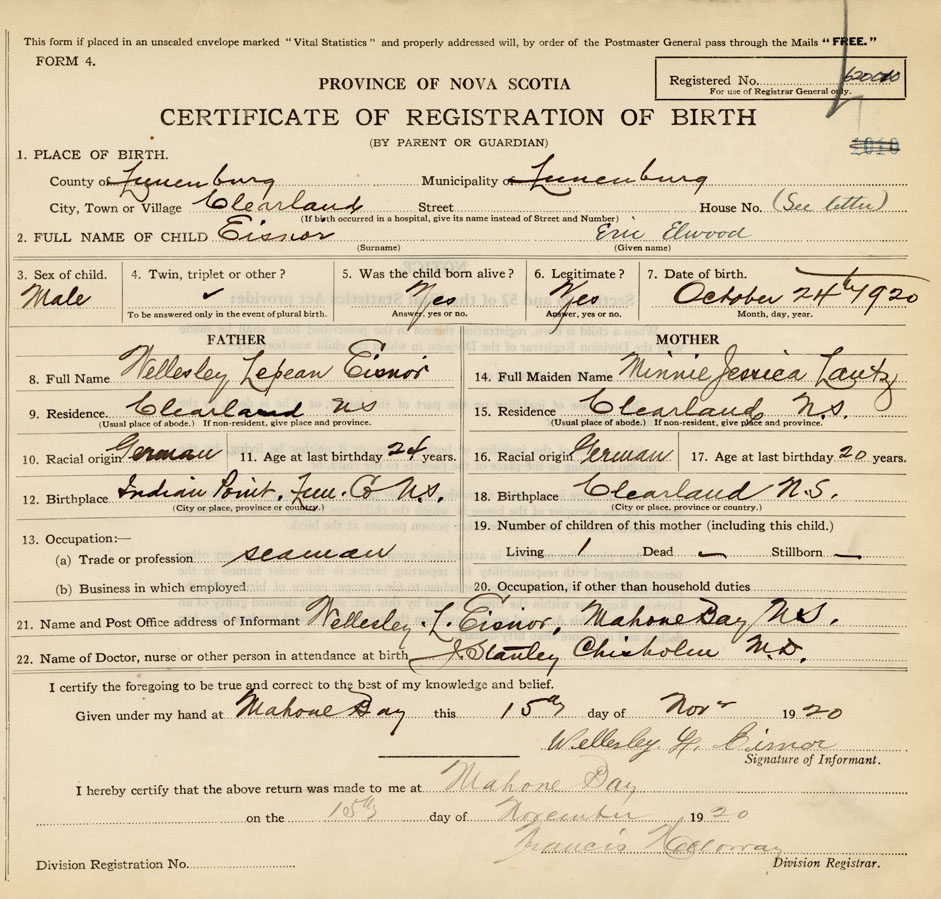 This form if placed in an unsealed envelope marked "Vital Statistics" and properly addressed will, by order of the Postmaster General pass through the Mails "FREE."
FORM 4.
Registered No.
For use of Registrar General only.
PROVINCE OF NOVA SCOTIA
CERTIFICATE OF REGISTRATION OF BIRTH
(BY PARENT OR GUARDIAN)
1010
1. PLACE OF BIRTH.
County of Lunenburg Municipality of Lunenburg
City, Town or Village Clearland Street House No. (See letter)
(If birth occurred in a hospital, give its name instead of Street and Number)
2. FULL NAME OF CHILD Eisnor Eric Elwood
(Surname) (Given name)
3. Sex of child. 4. Twin, triplet or other? 5. Was the child born alive? 6. Legitimate? 7. Date of birth.
Male ✓ Yes Yes October 24th 1920
To be answered only in the event of plural birth. Answer, yes or no. Answer, yes or no. Month, day, year.
FATHER MOTHER
8. Full Name Wellesley Lepean Eisnor 14. Full Maiden Name Minnie Jessica Lantz
9. Residence. Clearland NS 15. Residence Clearland N.S.
(Usual place of abode.) If non-resident, give place and province. (Usual place of abode.) If non-resident, give place and province.
10. Racial origin German 11. Age at last birthday 24 years. 16. Racial origin German 17. Age at last birthday 20 years.
12. Birthplace Indian Point. Lun. Co N.S. 18. Birthplace Clearland N.S.
(City or place, province or country.) (City or place, province or country.)
13. Occupation:— 19. Number of children of this mother (including this child.)
(a) Trade or profession seaman Living 1 Dead — Stillborn —
(b) Business in which employed 20. Occupation, if other than household duties
21. Name and Post Office address of Informant Wellesley. L. Eisnor, Mahone Bay N.S.
22. Name of Doctor, nurse or other person in attendance at birth J. Stanley Chisholm M.D.
I certify the foregoing to be true and correct to the best of my knowledge and belief.
Given under my hand at Mahone Bay this 15th day of Nov 1920
Wellesley L. Eisnor
Signature of Informant.
I hereby certify that the above return was made to me at Mahone Bay
on the 15th day of November 1920
Francis Holloway
Division Registration No. Division Registrar.